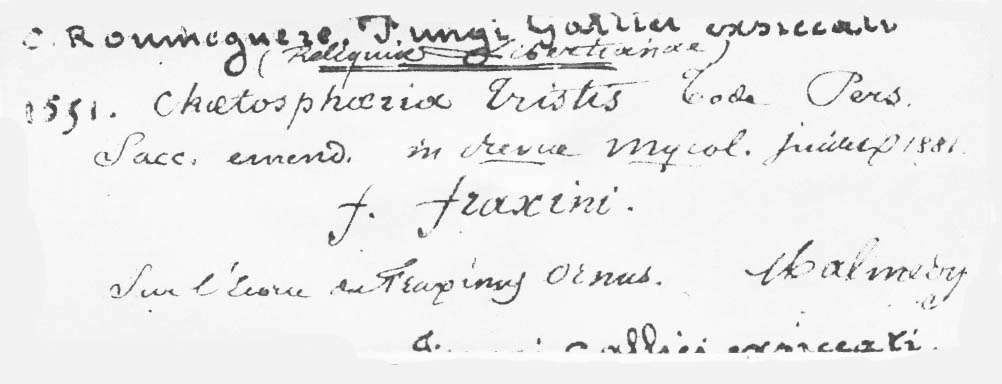 C. Roumeguere. Fungi Gallici exsiccati
(Reliquiae Libertianae)
1551. Chaetosphaeria tristis Tode Pers.
Sacc. emend. in Revue Mycol. juillet 1881.
f. fraxini.
Sur l'écorce du Fraxinus Ornus. Malmedy
Fungi Gallici exsiccati.